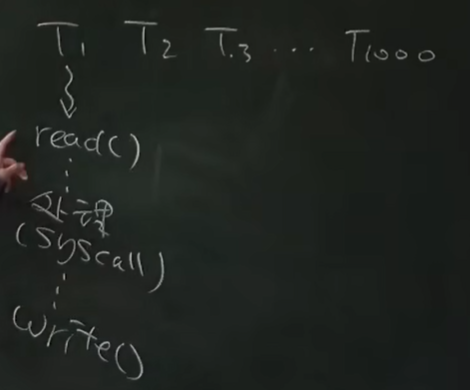 T1 T2 T3 ... T1000
read()
处理
(syscall)
write()